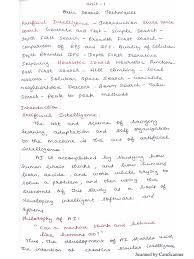 Unit - 1
Basic Search Techniques
Artificial Intelligence - Introduction State Space
Search Generate and Test - Simple Search -
Depth First Search - Breadth First Search -
Comparison of BFS and DFS - Quality of Solution
Depth Bounded DFS - Depth First Iterative
Deepening Heuristic Search Heuristic Function
Best First Search - Hill Climbing - Local
Maxima - Solution Space Search - Variable
Neighborhood Descent - Beam Search Tabu
Search - Peak to Peak methods
Introduction
Artificial Intelligence
The art and science of bringing
learning, adaptation and self organization
to the machine is the art of artificial
Intelligence.
AI is accomplished by studying how
human brain thinks, and how humans
learn, decide, and work while trying
to solve a problem, and then using the
outcomes of this study as a basis of
developing intelligent software and
systems.
Philosophy of AI:
"Can a machine think and behave
like humans do?"
Thus, the development of AI started with
the intention of creating similar intelligence
Scanned by CamScanner